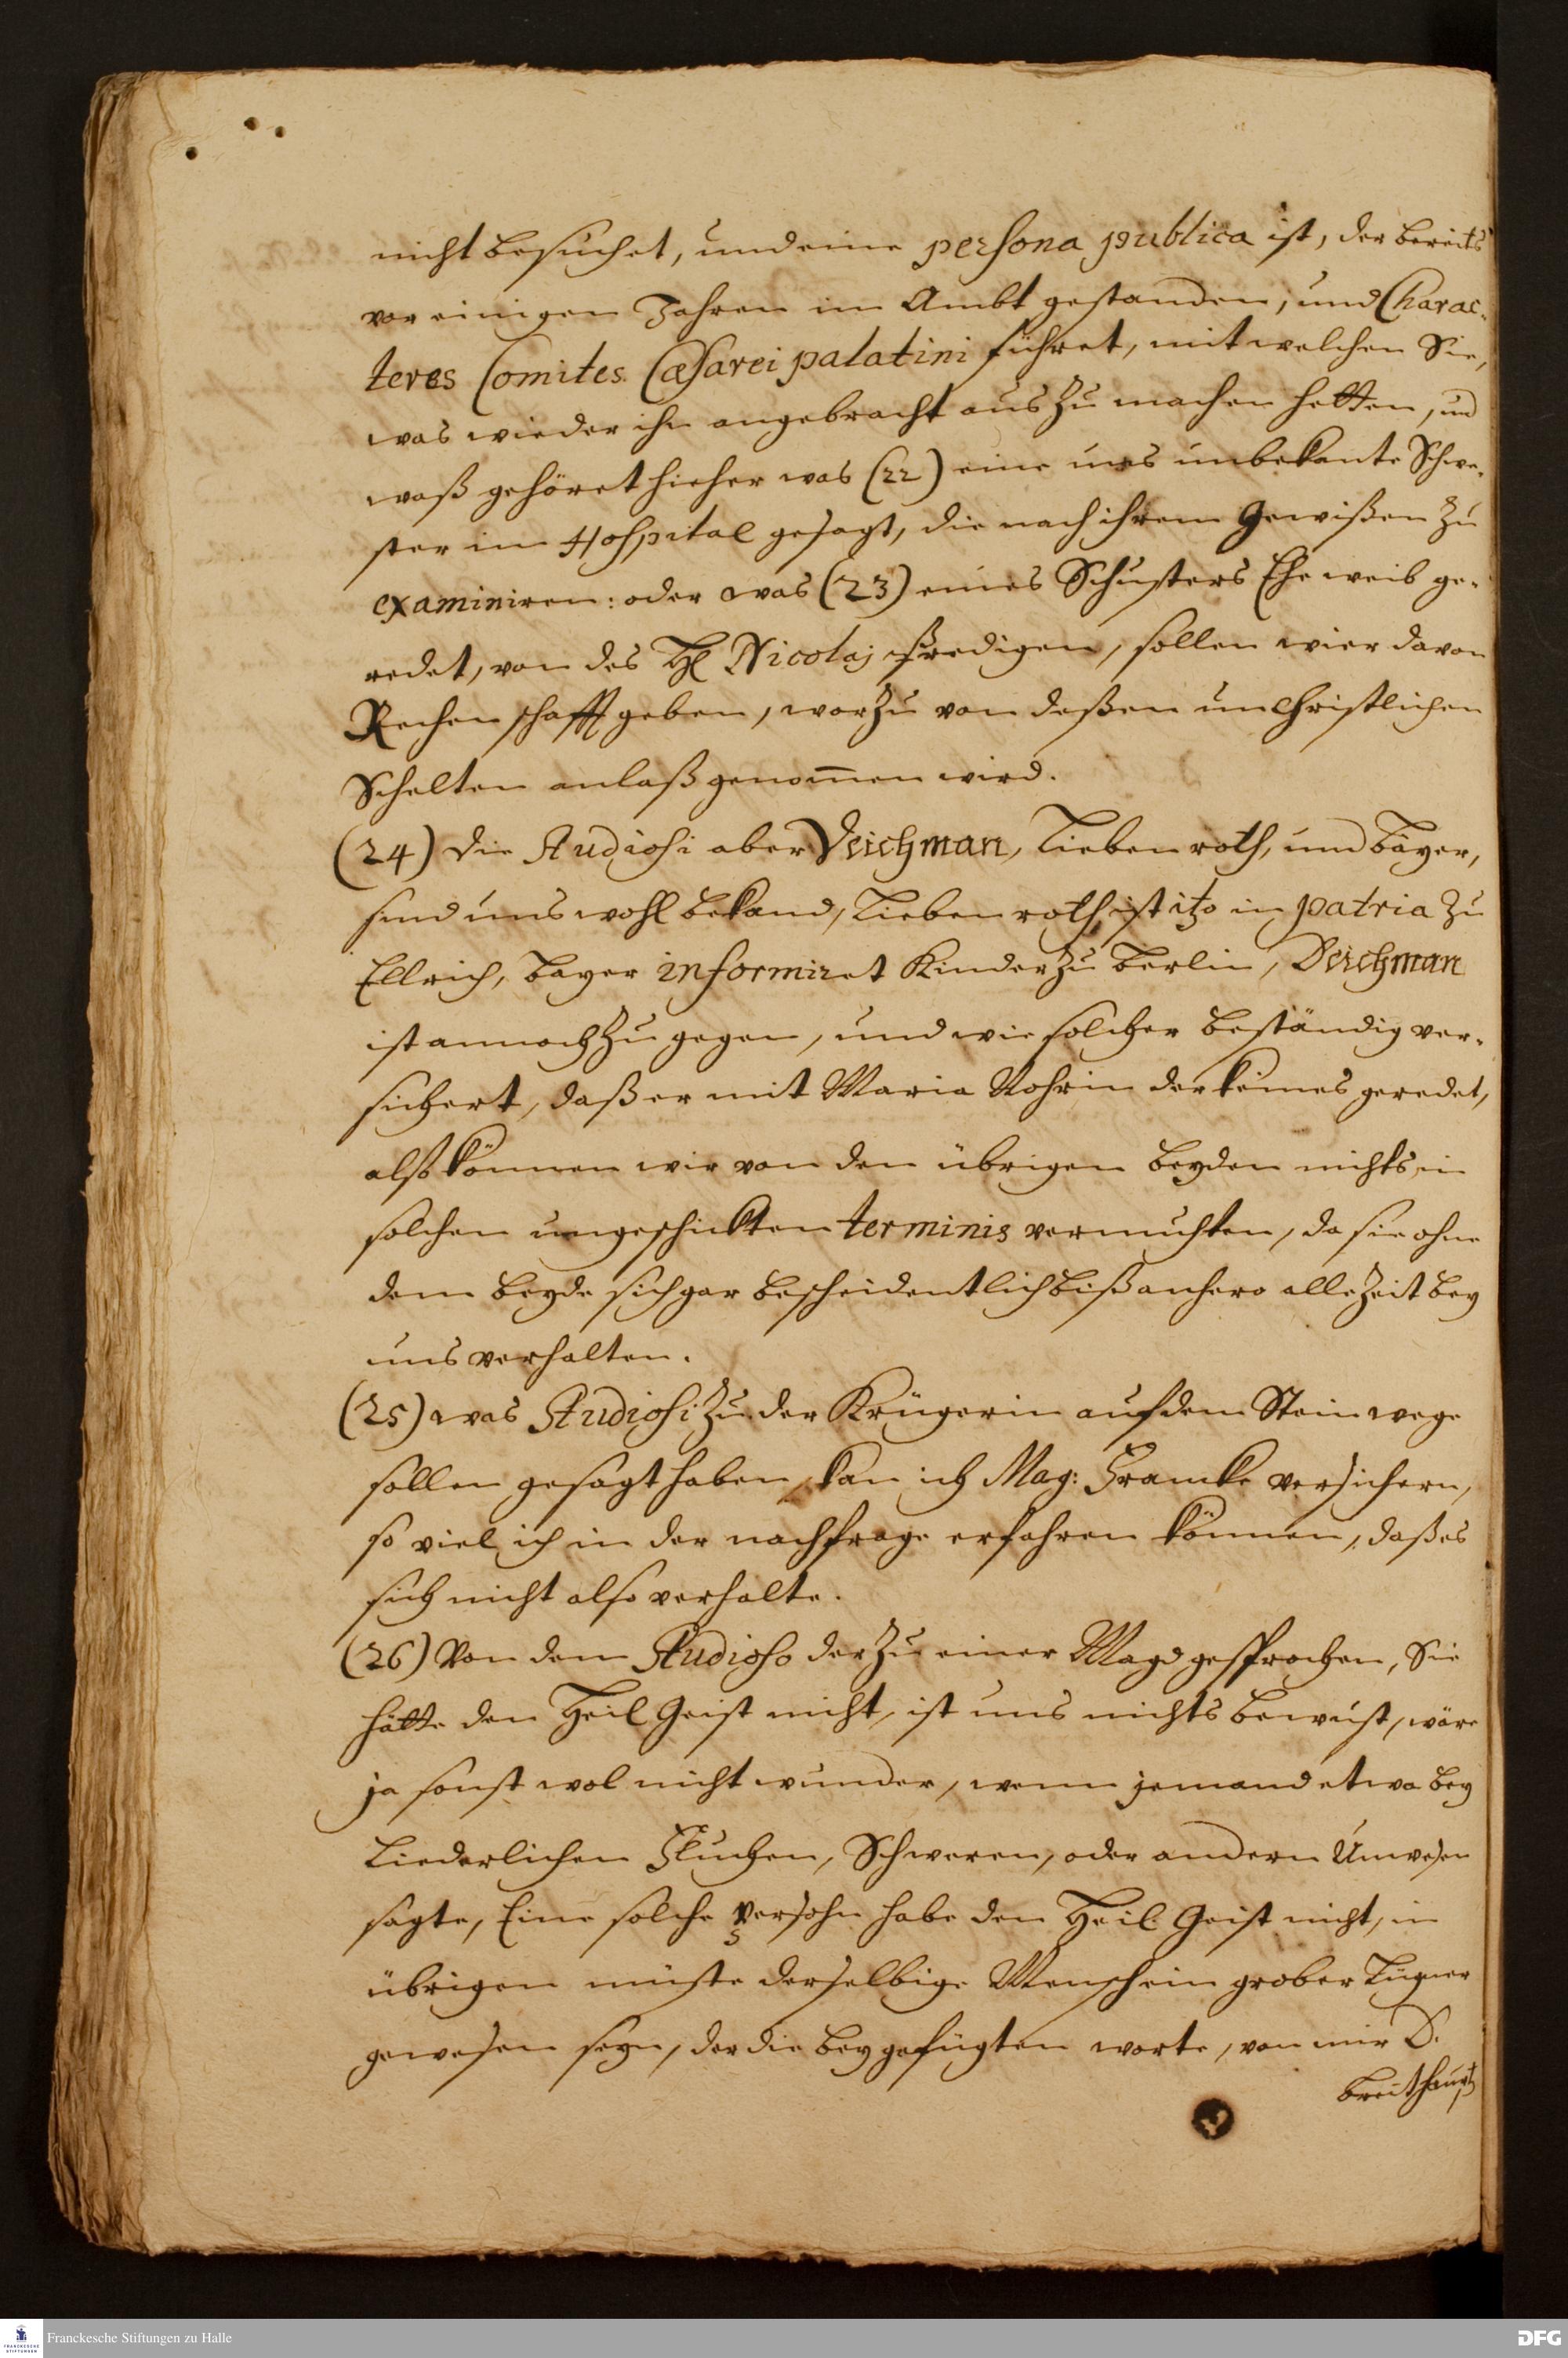 nicht besuchet, und eine persona publica ist, der bereits
vor einigen Jahren im Ambt gestanden, und Charac-
teres Comites Cæsarei palatini führet, mit welchen Sie,
was wieder ihn angebracht aus zu machen hetten, und
waß gehöret hieher was (22) eine uns unbekante Schwe-
ster im Hospital gesagt, die nach ihrem Gewißen zu
examiniren: oder was (23) eines Schusters Eheweib ge-
redet, von des H. Nicolaj predigen, sollen wier davon
Rechenschafft geben, worzu von deßen unchristlichen
Schelten anlaß genom̃en wird.
(24) die Studiosi aber Deichman, Liebenroth, und Bäyer,
sind uns wohl bekand, Liebenroth ist itzo in patria zu
Ellrich, Bayer informiret Kinder zu Berlin, Deichman
ist annoch zu gegen, und wie solcher beständig ver-
sichert, daß er mit Maria Rohrin der keines geredet,
also können wir von den übrigen beyden nichts in
solchen ungeschickten terminis vermuhten, da sie ohne
dem beyde sich gar bescheidentlich biß anhero allezeit bey
uns verhalten.
(25) was Studiosi zu der Krügerin auf dem Steinwege
sollen gesagt haben, kan ich Mag: Francke versichern,
so viel ich in der nachfrage erfahren können, daß es
sich nicht also verhalte.
(26) Von dem Studioso der zu einer Magd gesprochen, Sie
hätte den Heil Geist nicht, ist uns nichts bewust, wäre
ja sonst wol nicht wunder, wenn jemand etwa bey
Liederlichen Fluchen, Schweren, oder andern Unwesen
sagte, Eine solche Persohn habe den Heil. Geist nicht, im
übrigen müste derselbige Mensch ein grober Lügner
gewesen seyn, der die beygefügten worte, von mir D.
Breithaupt
Franckesche Stiftungen zu Halle
DFG